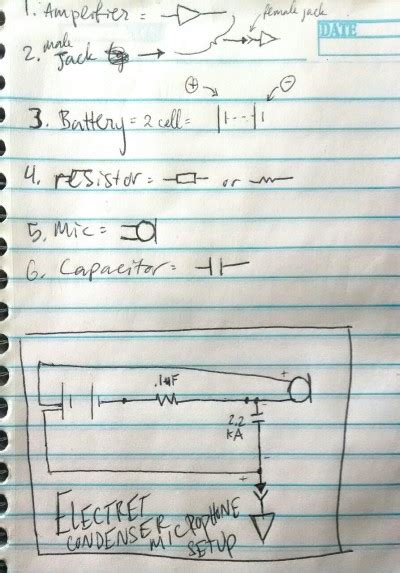 1. Amplifier =
female jack
DATE
2. male Jack
3. Battery = 2 cell =
4. resistor = or
5. Mic =
6. Capacitor =
.1uF
2.2
kA
ELECTRET
CONDENSER
MICROPHONE
SETUP